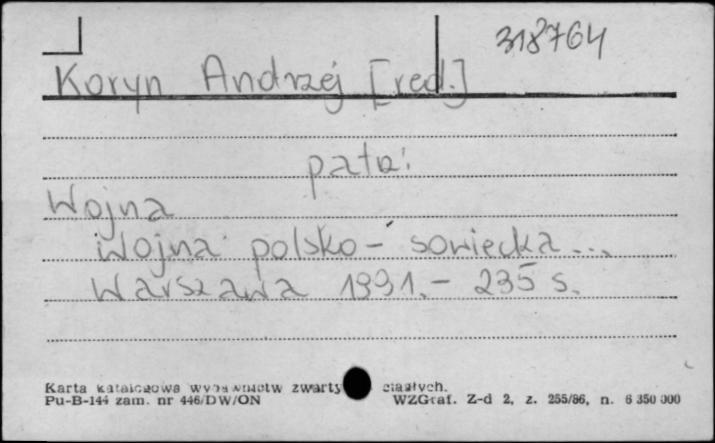 318764
Koryn Andrzej [red.]
patrz:
Wojna
Wojna polsko-sowiecka...
Warszawa 1991.- 235 s.
Karta katalogowa wydawnictw zwartych ciągłych.
Pu-B-144 zam. nr 446/DW/ON WZGraf. Z-d 2, z. 255/86, n. 6 350 000